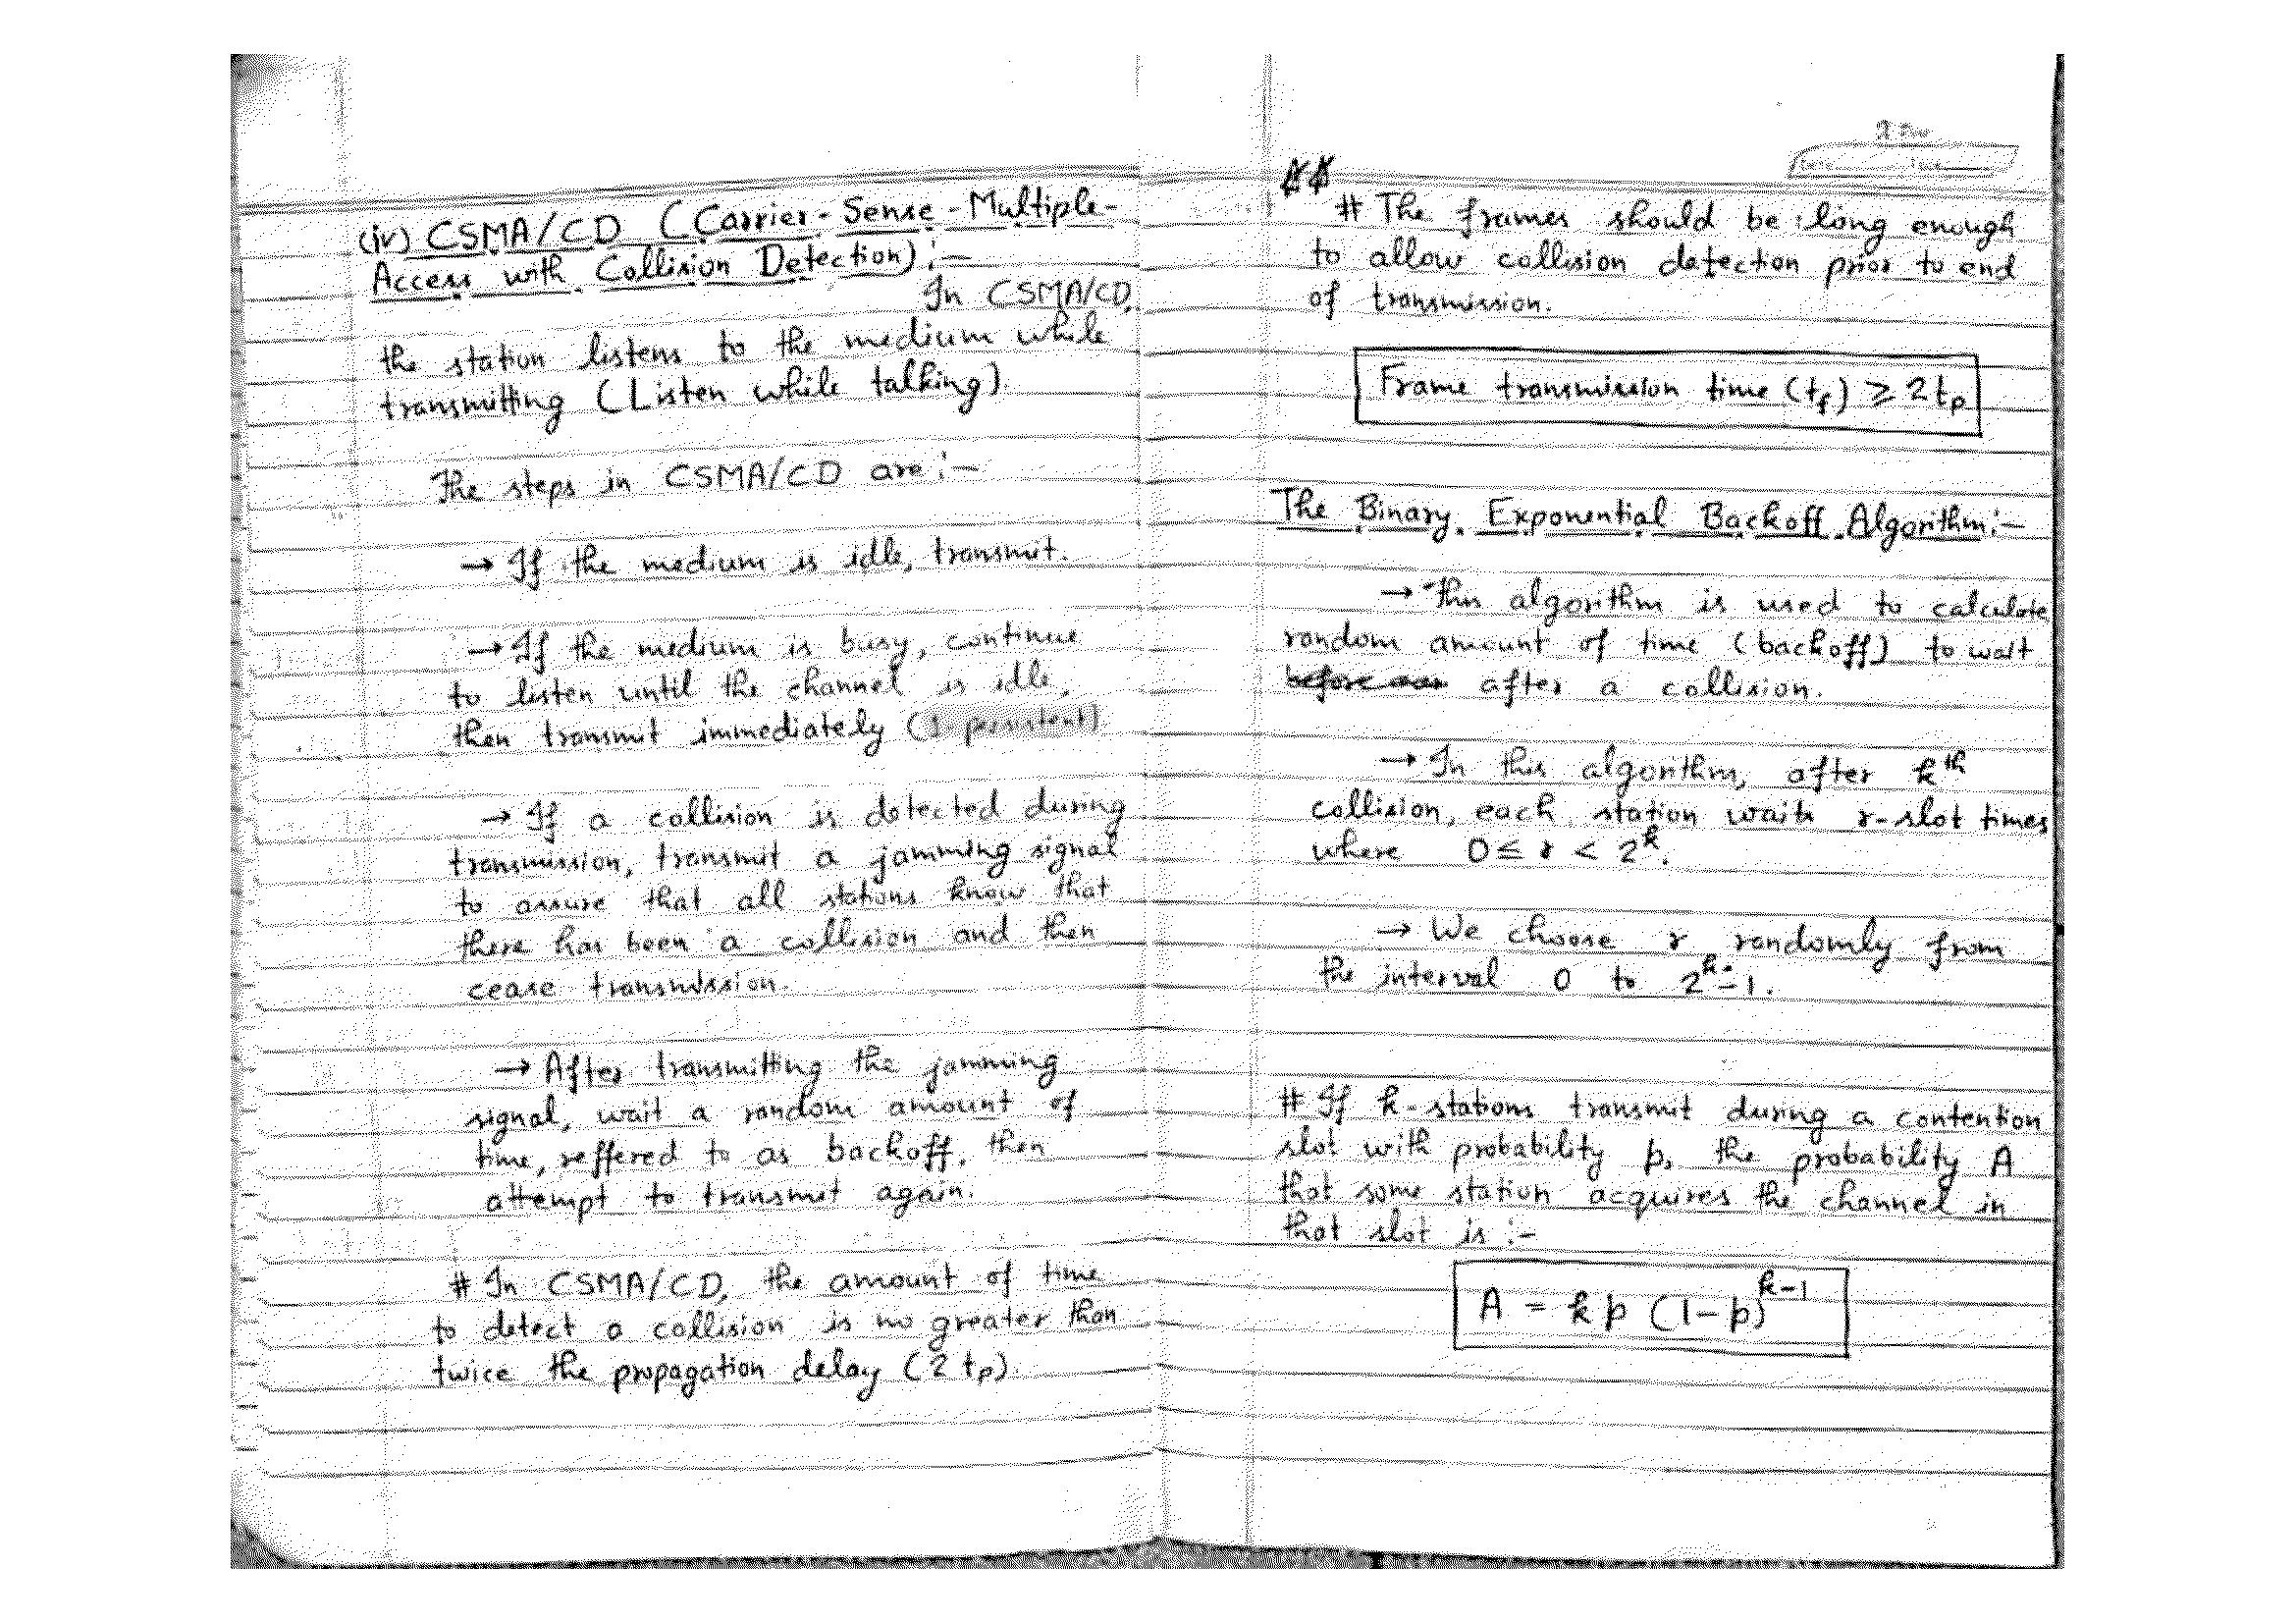 (iv) CSMA/CD (Carrier-Sense-Multiple-
Access with Collision Detection) :-
In CSMA/CD,
the station listens to the medium while
transmitting (Listen while talking).
The steps in CSMA/CD are :-
→ If the medium is idle, transmit.
→ If the medium is busy, continue
to listen until the channel is idle,
then transmit immediately (1 persistent)
→ If a collision is detected during
transmission, transmit a jamming signal
to assure that all stations know that
there has been a collision and then
cease transmission.
→ After transmitting the jamming
signal, wait a random amount of
time, reffered to as backoff, then
attempt to transmit again.
# In CSMA/CD, the amount of time
to detect a collision is no greater than
twice the propagation delay (2 tp).
# The frames should be long enough
to allow collision detection prior to end
of transmission.
Frame transmission time (tf) ≥ 2tp
The Binary Exponential Backoff Algorithm :-
→ This algorithm is used to calculate
random amount of time (backoff) to wait
before after a collision.
→ In this algorithm, after kth
collision, each station waits r-slot times
where 0 ≤ r < 2^k.
→ We choose r randomly from
the interval 0 to 2^k - 1.
# If k-stations transmit during a contention
slot with probability p, the probability A
that some station acquires the channel in
that slot is :-
A = k p (1-p)^k-1